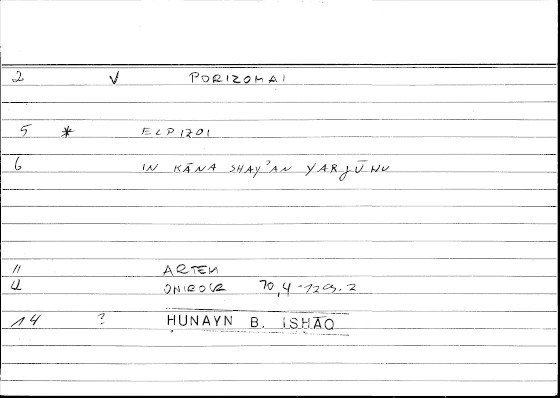 2 V PORIZOMAI
5 * ELPIZOI
6 IN KĀNA SHAY'AN YARJŪHU
11 ARTEM
ONIROCR 70,4
14 ? HUNAYN B. ISHĀQ